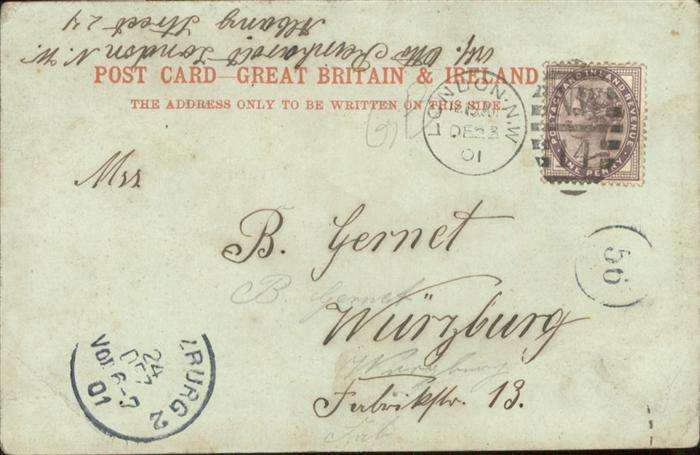 Albany Street 24
Otto Reinhardt London N.W.
POST CARD GREAT BRITAIN & IRELAND
THE ADDRESS ONLY TO BE WRITTEN ON THIS SIDE.
LONDON.N.W
DE 23
01
POSTAGE AND INLAND REVENUE
ONE PENNY
Mrs
B. Gernet
B. Gernet
Würzburg
Würzburg
Fabrikstr. 13.
Fab
56
ZBURG 2
24
DEZ
VOR 6-7
01